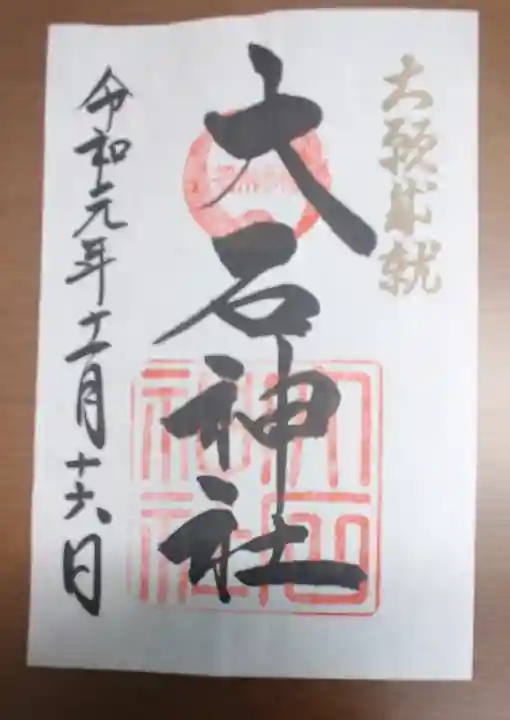 大願成就
大石神社
令和元年十二月十六日
大石神社